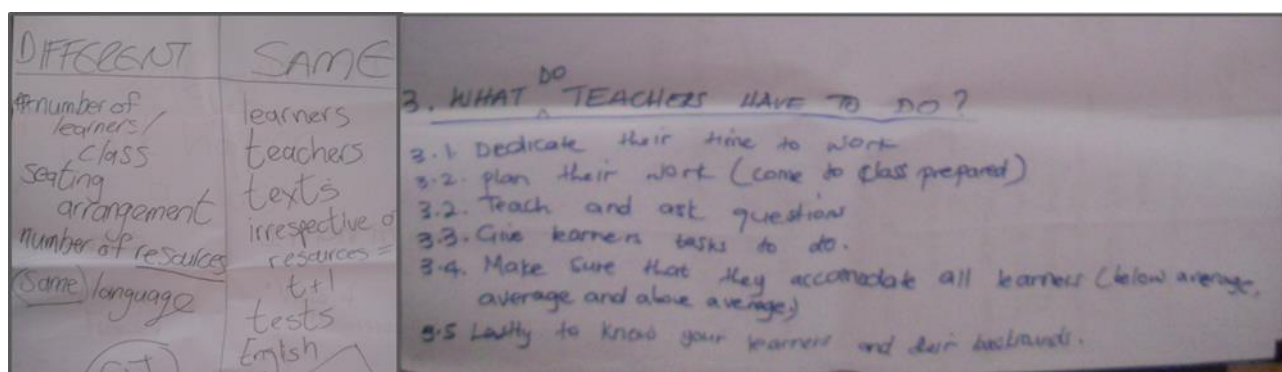 DIFFERENT
number of
learners/
class
seating
arrangement
number of resources
(Same) language
SAME
learners
teachers
texts
irrespective of
resources =
t+l
tests
English
3. WHAT DO TEACHERS HAVE TO DO?
3.1 Dedicate their time to work
3.2. plan their work (come to class prepared)
3.2. Teach and ask questions
3.3. Give learners tasks to do.
3.4. Make sure that they accomodate all learners (below average,
average and above average,)
3.5 Lastly to know your learners and their